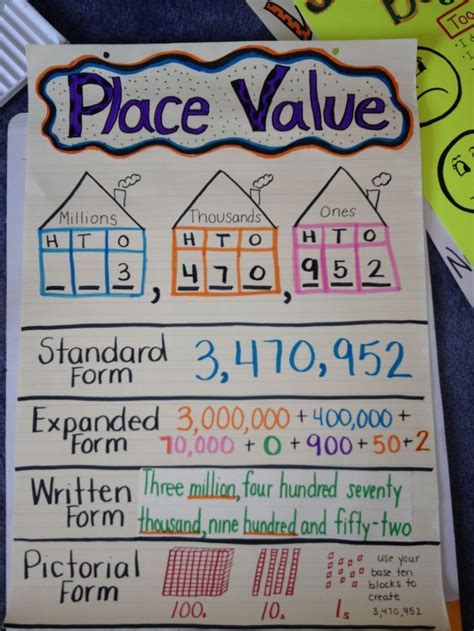 Place Value
Millions
Thousands
Ones
H T O
H T O
H T O
_ _ 3, 4 7 0, 9 5 2
Standard
Form
3,470,952
Expanded
Form
3,000,000 + 400,000 +
70,000 + 0 + 900 + 50 + 2
Written
Form
Three million, four hundred seventy
thousand, nine hundred and fifty-two
Pictorial
Form
100s
10s
1s
use your
base ten
blocks to
create
3,470,952